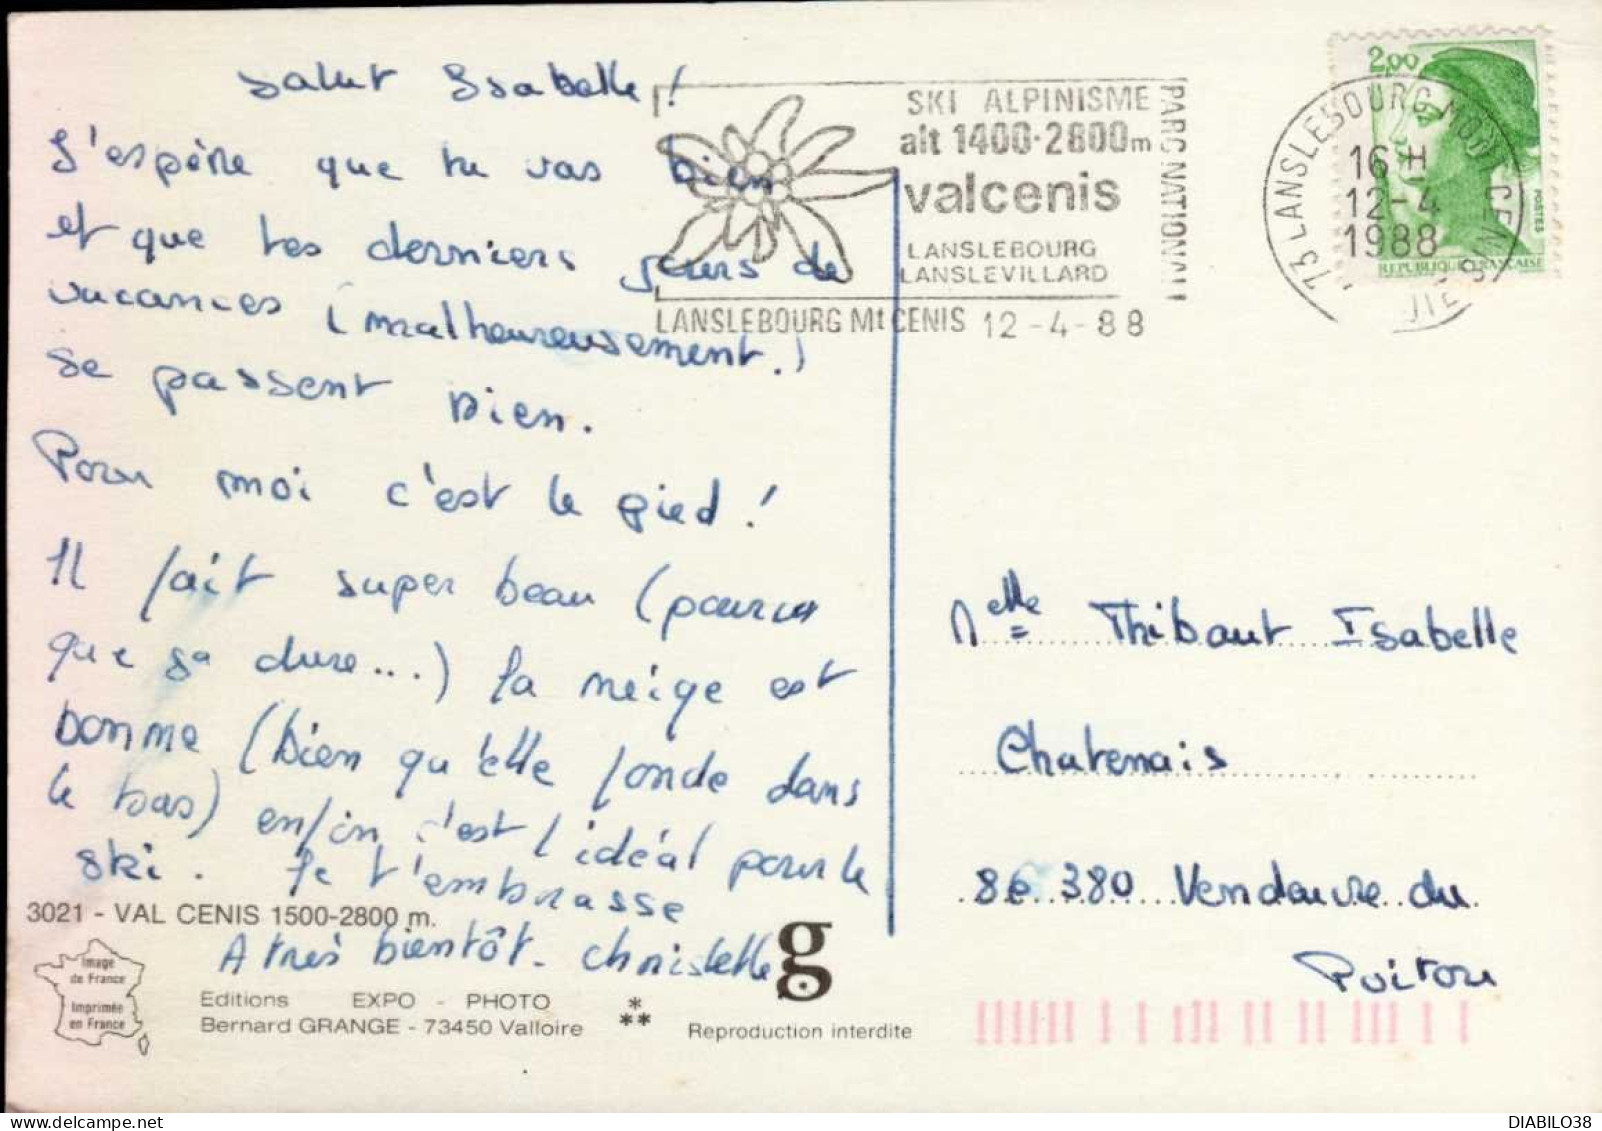 Salut Isabelle !
J'espère que tu vas bien
et que tes derniers jours de
vacances (malheureusement.)
se passent bien.
Pour moi c'est le pied !
Il fait super beau (pourvu
que sa dure...) la neige est
bonne (bien qu'elle fonde dans
le bas) enfin c'est l'idéal pour le
ski. Je t'embrasse
A très bientôt. Christelle
3021 - VAL CENIS 1500-2800 m.
Image
de France
Imprimée
en France
Editions EXPO - PHOTO
Bernard GRANGE - 73450 Valloire
*
**
g
Reproduction interdite
SKI ALPINISME
alt 1400·2800m
valcenis
LANSLEBOURG
LANSLEVILLARD
PARC NATIONAL
LANSLEBOURG Mt CENIS 12-4-88
2,00
POSTES
REPUBLIQUE FRANCAISE
73 LANSLEBOURG MONT CENIS
16 H
12-4
1988
Melle Thibaut Isabelle
Chatenais
86 380 Vendauvre du
Poitou
DIABILO38